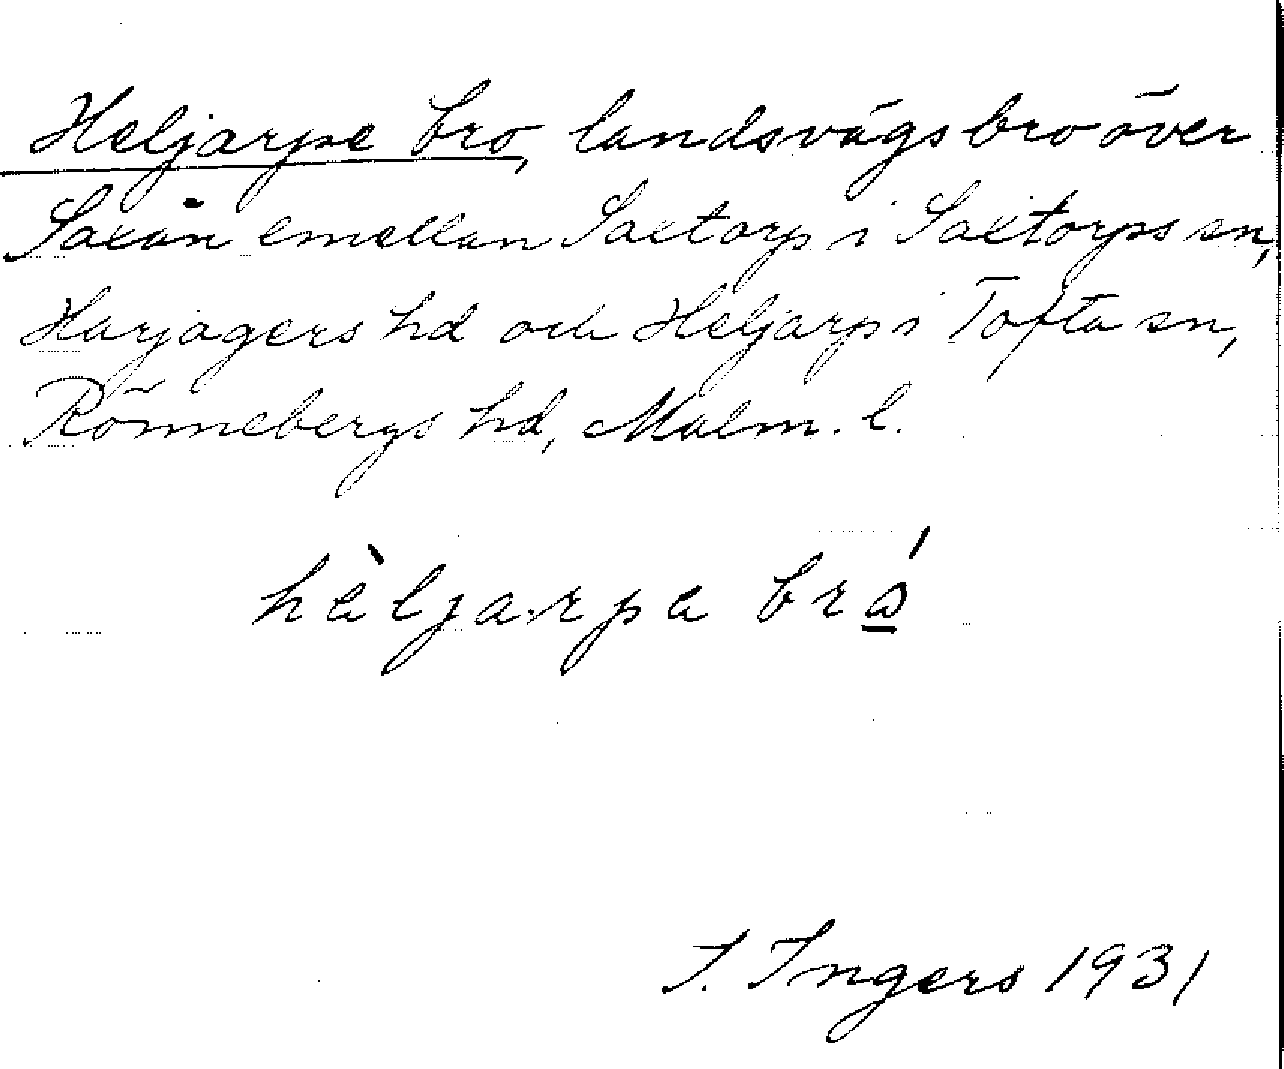 Heljarpe bro, landsvägsbro över
Saxån emellan Saxtorp i Saxtorps sn,
Harjagers hd och Heljarp i Tofta sn,
Rönnebergs hd, Malm. l.
hèljarpa brá
I. Ingers 1931